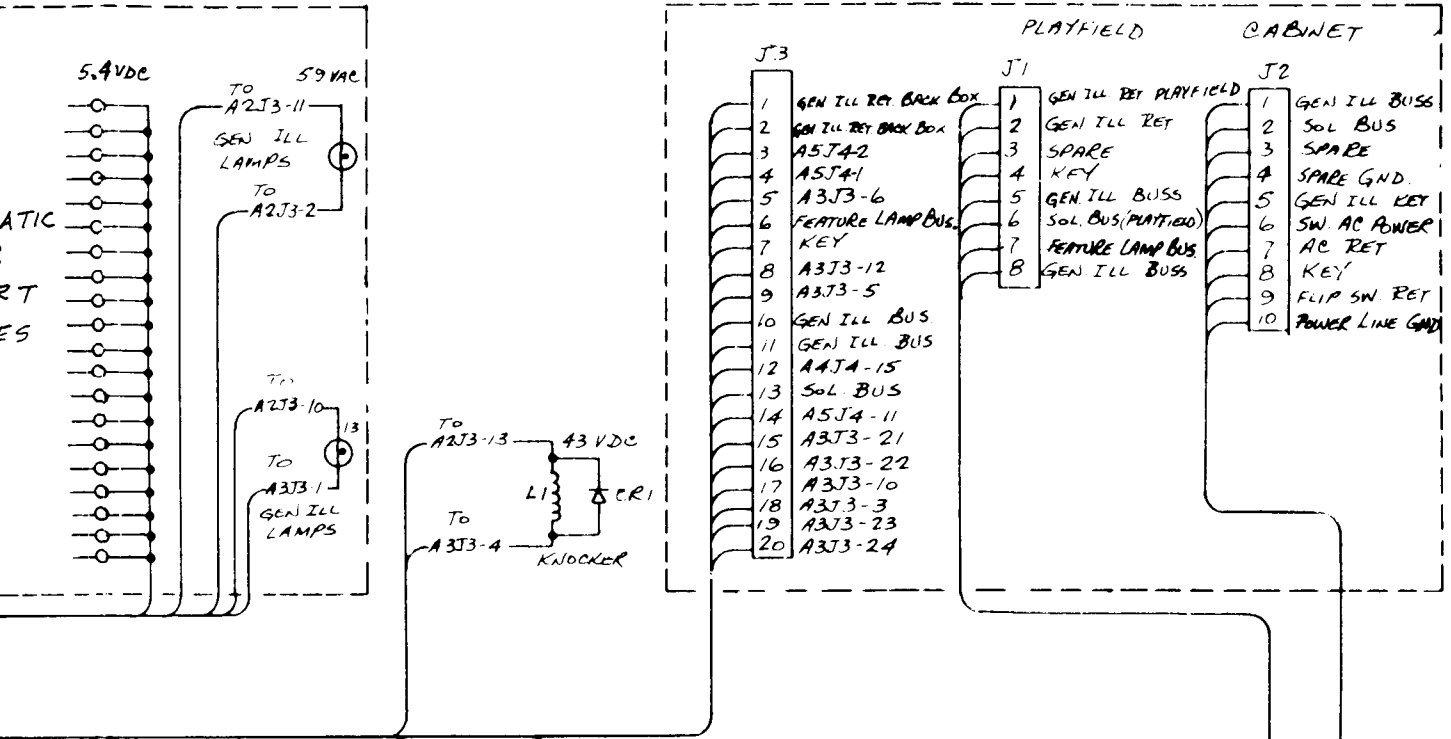 PLAYFIELD
CABINET
5.4VDC
59 VAC
TO
A2J3-11
GEN ILL
LAMPS
TO
A2J3-2
ATIC
RT
ES
TO
A2J3-10
13
TO
A3J3-1
GEN ILL
LAMPS
TO
A2J3-13
43 VDC
L1
CR1
TO
A3J3-4
KNOCKER
J3
1 GEN ILL RET. BACK BOX
2 GEN ILL RET BACK BOX
3 A5J4-2
4 A5J4-1
5 A3J3-6
6 FEATURE LAMP BUS.
7 KEY
8 A3J3-12
9 A3J3-5
10 GEN ILL BUS.
11 GEN ILL BUS
12 A4J4-15
13 SOL. BUS
14 A5J4-11
15 A3J3-21
16 A3J3-22
17 A3J3-10
18 A3J3-3
19 A3J3-23
20 A3J3-24
J1
1 GEN ILL RET PLAYFIELD
2 GEN ILL RET
3 SPARE
4 KEY
5 GEN. ILL BUSS
6 SOL. BUS (PLAYFIELD)
7 FEATURE LAMP BUS.
8 GEN ILL BUSS
J2
1 GEN ILL BUSS
2 SOL BUS
3 SPARE
4 SPARE GND.
5 GEN ILL RET
6 SW. AC POWER
7 AC RET
8 KEY
9 FLIP SW. RET
10 POWER LINE GND